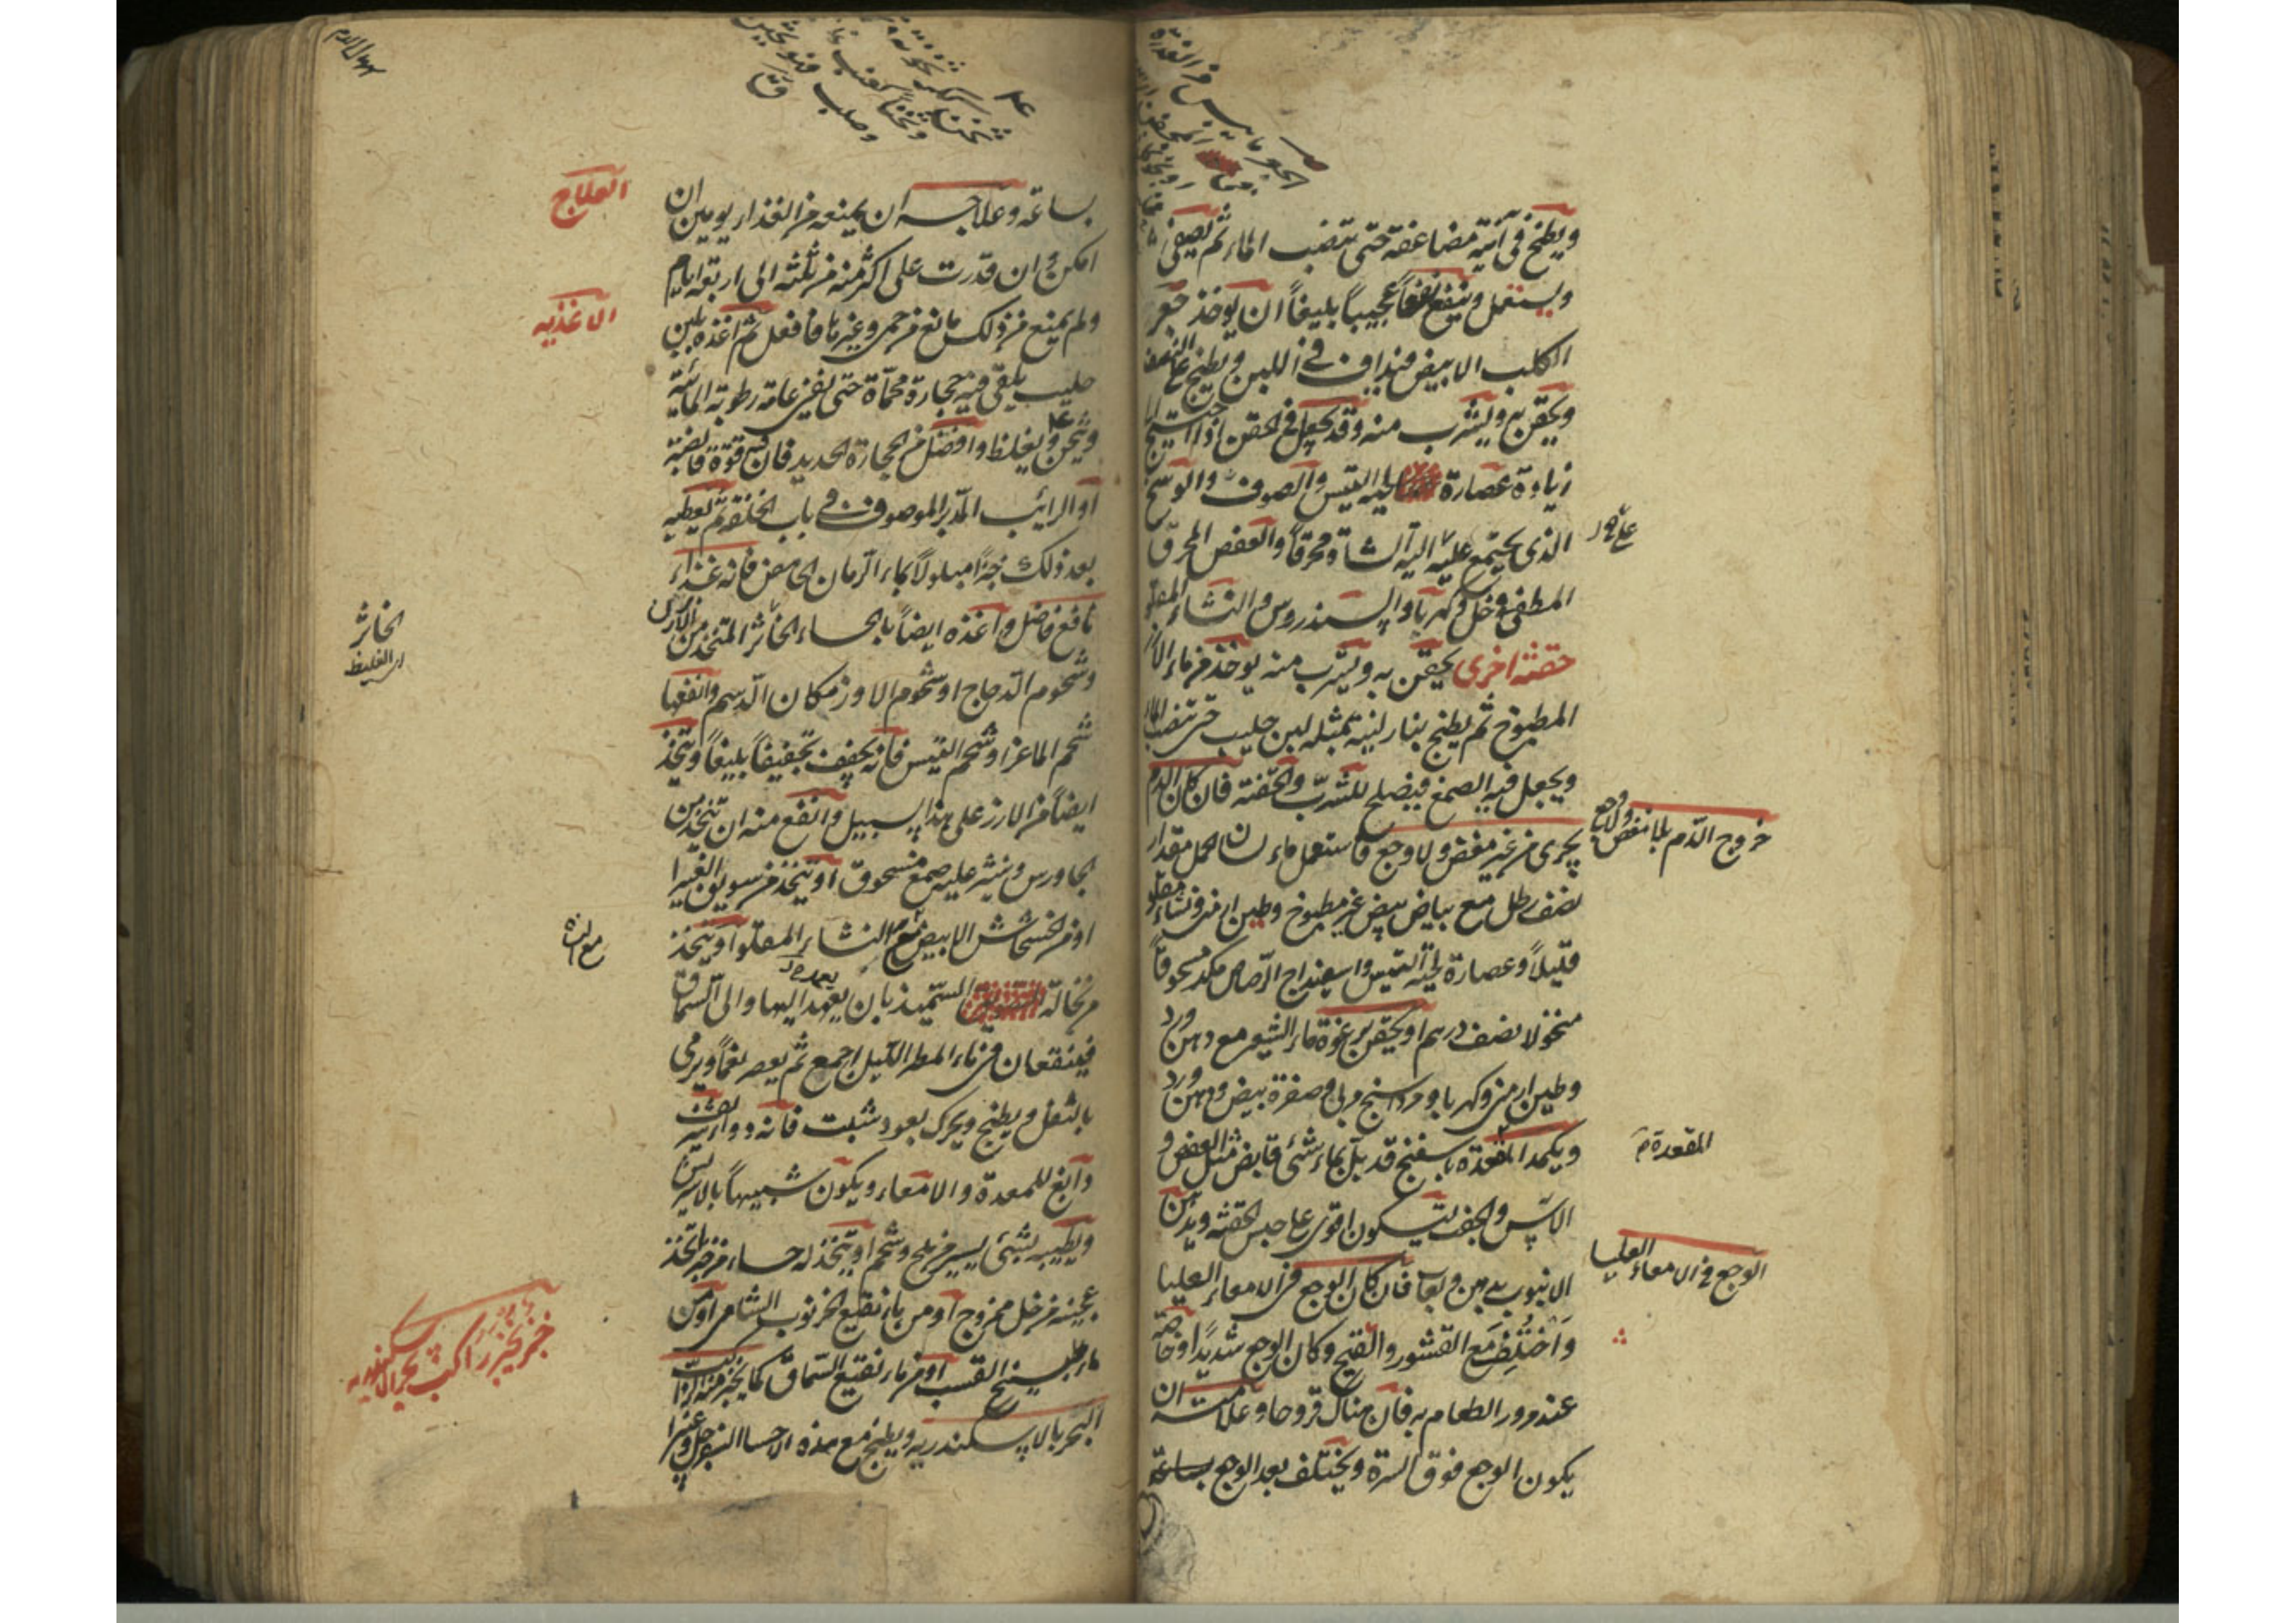 ويطبخ في آنية مضاعفة حتى تنضب الماء ثم تصفى
ويستعمل وينفع نفعاً عجيباً بليغاً ان يؤخذ جعر
الكلب الابيض فيداف في اللبن ويطبخ على النصف
ويحقن به ويشرب منه وقد يجعل في الحقن اذا احتيج الى
زيادة عصارة لحية التيس والصوف والوسخ
الذي يجتمع عليه الية الشاة محرقاً والعفص المحرق
المطفى في خل وكهربا والسندروس والنشاء المقلو
حقنة اخرى يحقن به ويشرب منه يؤخذ من ماء الارز
المطبوخ ثم يطبخ بنار لينة بمثله لبن حليب حتى تنضب الماء
ويجعل فيه الصمغ فيصلح للشرب والحقنة فان كان الدم
يجرى من غير مغص ولا وجع فاستعمل ماء لسان الحمل مقدار
نصف رطل مع بياض بيض غير مطبوخ وطين ارمنى ونشاء مقلو
قليلاً وعصارة لحية التيس واسفيداج الرصاص مكد مسحوقاً
منخولا نصف درهم او يحقن برغوة ماء الشعير مع دهن ورد
وطين ارمنى وكهربا ومرداسنج مربى وصفرة بيض ودهن ورد
ويكمد المقعدة باسفنج قد بل بماء شئ قابض مثل العفص و
الآس والجفت ليكون اقوى على حبس الحقنة ويدهن
الانبوب بدهن ولعاب فان كان الوجع فى الامعاء العليا
واختلف مع القشور والقيح وكان الوجع شديداً وخاصة
عند مرور الطعام به فان هناك قروحا وعلامته ان
يكون الوجع فوق السرة ويختلف بعد الوجع بساعة
خروج الدم بلا مغص ولا وجع
المقعدة
الوجع في الامعاء العليا
بساعة وعلاجه ان يمنعه من الغذاء يومين ان
امكن وان قدرت على اكثر منه من ثلثة الى اربعة ايام
ولم يمنع من ذلك مانع من حمى وغيرها فافعل ثم اغذه بلبن
حليب يلقى فيه حجارة محماة حتى يفنى عامة رطوبته المائية
ويثخن ويغلظ وافضل من الحجارة الحديد فان فيه قوة قابضة
او الرائب المدبر الموصوف في باب الخلفة ثم تعطيه
بعد ذلك خبزاً مبلولاً بماء الرمان الحامض فانه غذاء
نافع فاضل واغذه ايضاً بالحساء الخاثر المتخذ من الارز
وشحوم الدجاج او شحوم الاوز مكان الدسم وانفعها
شحم الماعز او شحم التيس فانه يجفف تجفيفاً بليغاً ويتخذ
ايضاً من الارز على هذا السبيل وانفع منه ان تتخذ من
الجاورس وينثر عليه صمغ مسحوق او يتخذ من سويق الغبيرا
او من الخشخاش الابيض مع النشاء المقلو او يتخذ
من نخالة السميد بان يعمد اليها والى السماق
فينقعان فى ماء المطر الليل اجمع ثم يعصر نعماً ويرمى
بالثفل ويطبخ ويحرك بعود شبت فانه دواء
ودابغ للمعدة والامعاء ويكون شبيهاً
ويطيبه بشئ يسير من ملح وشحم او يتخذ له حساء من خبز يتخذ
عجينه من خل ممزوج او من ماء نقيع الخرنوب الشامى او من
ماء طبيخ القسب او من ماء نقيع السماق كما يخبز منه
البحر بالاسكندريه ويطبخ مع هذه الاحساء السفرجل
العلاج
الاغذيه
الخاثر
اى الغليظ
خبز يخبز راكب بحر الاسكندريه